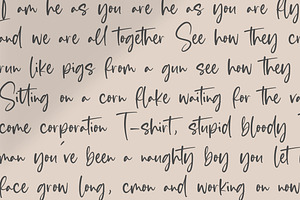 I am he as you are he as you are
and we are all together See how they
run like pigs from a gun see how they
Sitting on a corn flake waiting for the
come corporation T-shirt, stupid bloody
man you've been a naughty boy you let
face grow long, cmon and working on now